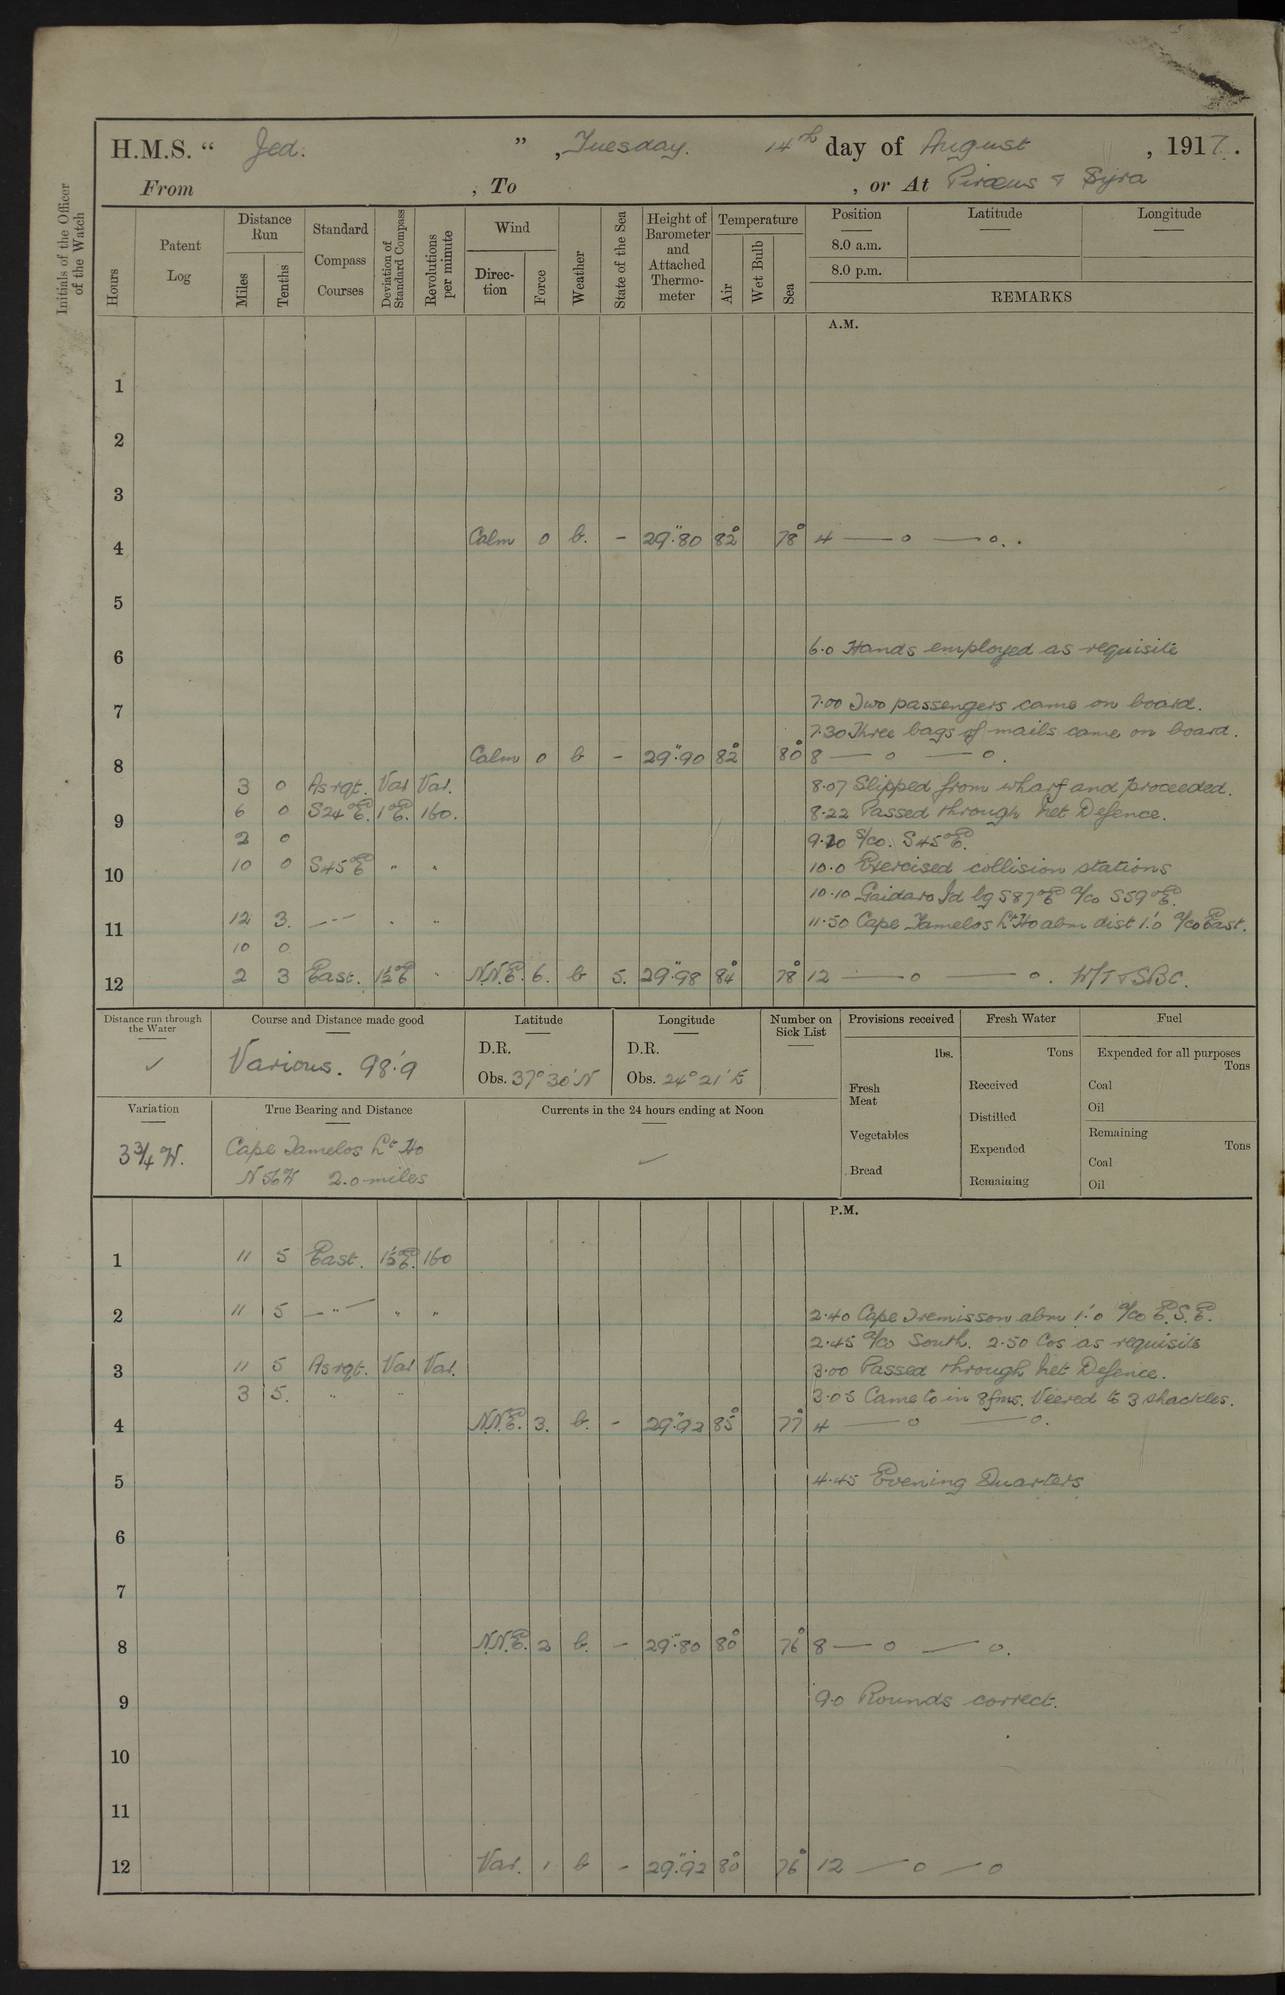 H.M.S. “ Jed. ” , Tuesday. 14th day of August , 1917.
From , To , or At Piræus & Syra
Initials of the Officer of the Watch
Hours
Patent Log
Distance Run
Miles
Tenths
Standard Compass Courses
Deviation of Standard Compass
Revolutions per minute
Wind
Direc-tion
Force
Weather
State of the Sea
Height of Barometer and Attached Thermo-meter
Temperature
Air
Wet Bulb
Sea
Position Latitude Longitude
8.0 a.m.
8.0 p.m.
REMARKS
A.M.
1
2
3
4 Calm 0 b. - 29".80 82° 78° 4 — o — o.
5
6 6.0 Hands employed as requisite
7 7.00 Two passengers came on board.
7.30 Three bags of mails came on board.
8 Calm 0 b - 29".90 82° 80° 8 — o — o.
3 0 As rqt. Var Var. 8.07 Slipped from wharf and proceeded.
9 6 0 S24°E. 1°E. 160. 8.22 Passed through Net Defence.
2 0 9.20 s/co. S45°E.
10 10 0 S45°E " " 10.0 Exercised collision stations
10.10 Gaidaro Id bg S87°E a/co S59°E.
11 12 3. — " — " " 11.50 Cape Tamelos Lt Ho abm dist 1.'0 a/co East.
10 0
12 2 3 East. 1½°E " N.N.E. 6. b 5. 29".98 84° 78° 12 — o — o. W/T & SBC.
Distance run through the Water Course and Distance made good Latitude Longitude Number on Sick List Provisions received Fresh Water Fuel
✓ Various. 98.'9
D.R. D.R.
Obs. 37° 30' N Obs. 24° 21' E
lbs. Tons Expended for all purposes Tons
Fresh Meat Received Coal
Distilled Oil
Variation True Bearing and Distance Currents in the 24 hours ending at Noon
Vegetables Expended Remaining Tons
Bread Remaining Coal
Oil
3¾ W. Cape Tamelos Lt Ho
N 56 W 2.0 miles
P.M.
1 11 5 East. 1½°E. 160
2 11 5 — " — " " 2.40 Cape Tremisson abm 1.'0 a/co E.S.E.
2.45 a/co South. 2.50 Cos as requisite
3 11 5 As rqt. Var Var. 3.00 Passed through Net Defence.
3 5. " " 3.05 Came to in 8 fms. Veered to 3 shackles.
4 N.N.E. 3. b. - 29".92 85° 77° 4 — o — o.
5 4.45 Evening Quarters
6
7
8 N.N.E. 2 b. - 29".80 80° 76° 8 — o — o.
9 9.0 Rounds correct.
10
11
12 Var. 1 b - 29".92 80° 76° 12 — o — o